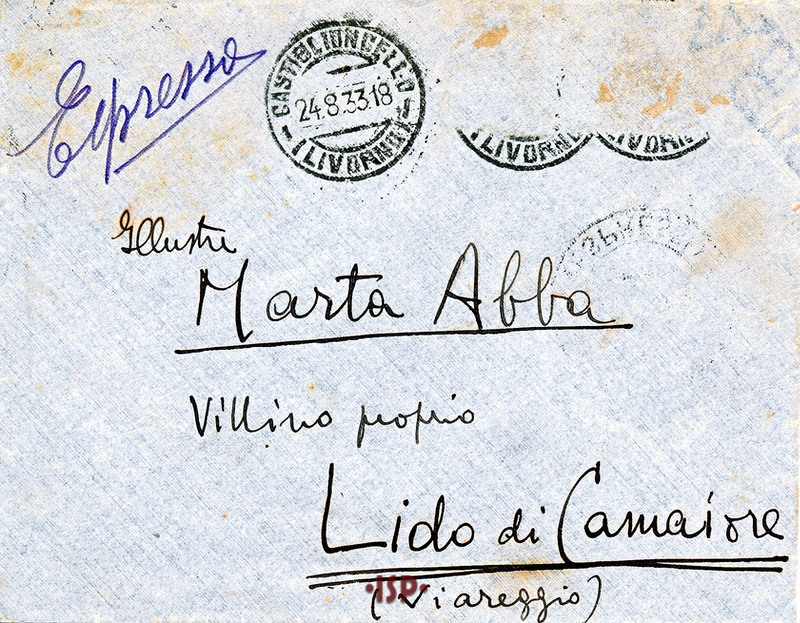 Espresso
CASTIGLIONCELLO
24.8.33.18
(LIVORNO)
(LIVORNO)
(LIVORNO)
Illustre
Marta Abba
Villino proprio
Lido di Camaiore
·ISP·
(Viareggio)